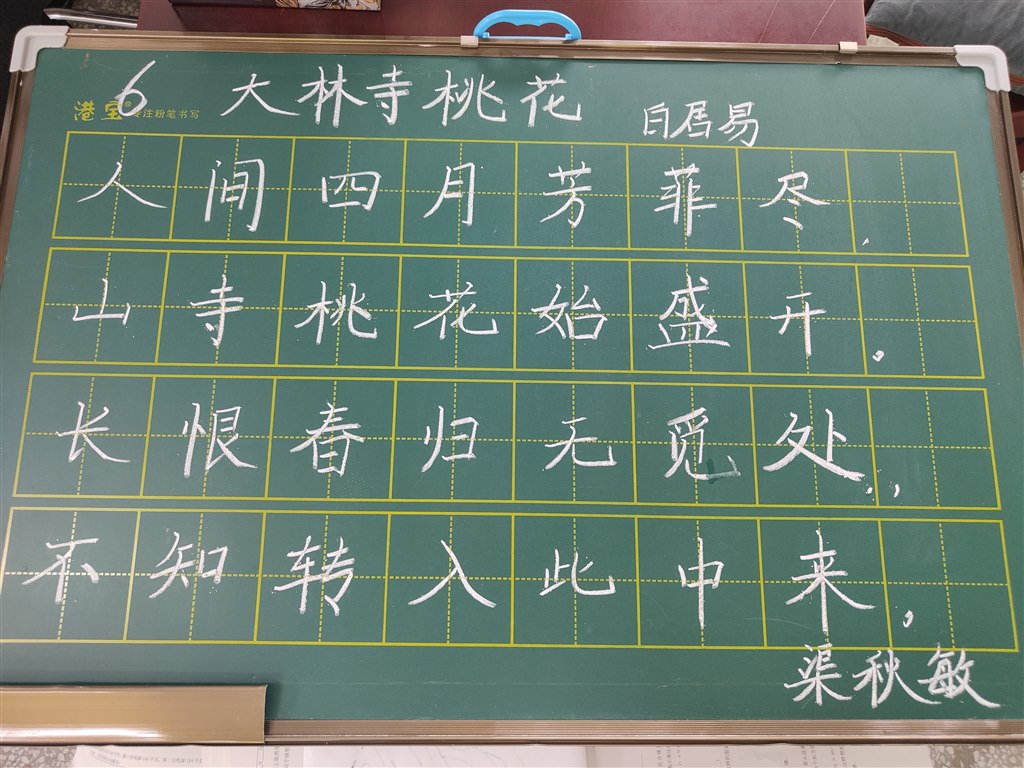 6 大林寺桃花 白居易
港宝® 专注粉笔书写
人间四月芳菲尽,
山寺桃花始盛开。
长恨春归无觅处,
不知转入此中来。
渠秋敏